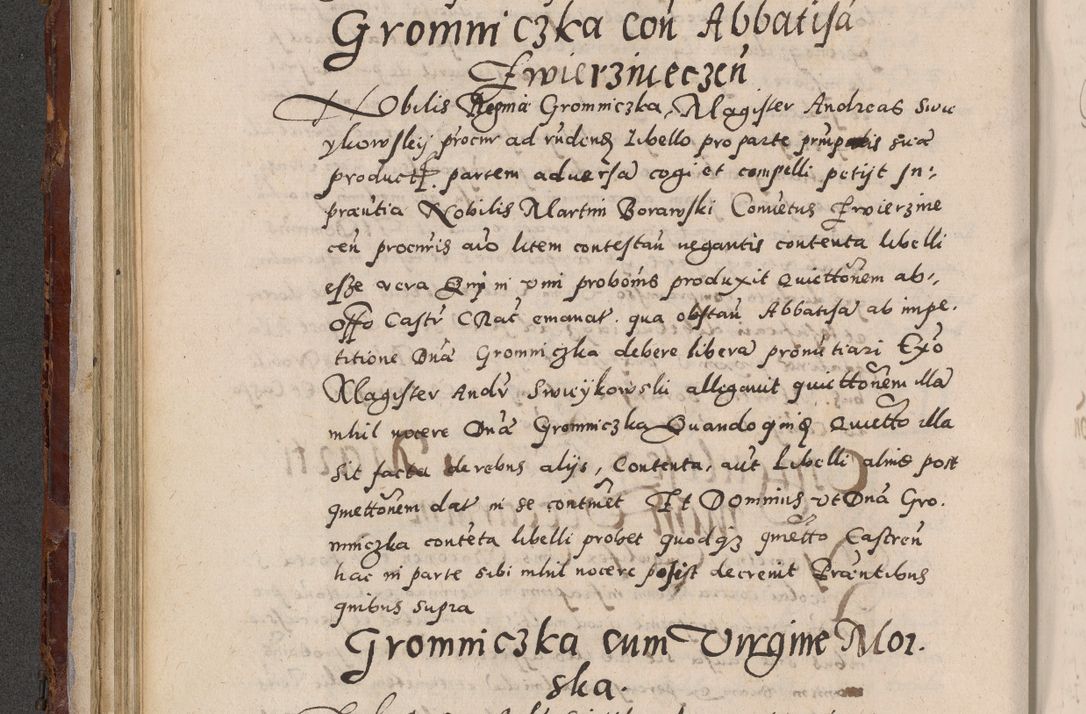 Gromniczka con Abbatisa
Zwierzinieczen
Nobilis Regina Gromniczka, Magister Andreas Swie
ykowskij procur ad rudend Libello pro parte prnpalis sua
product partem adversa cogi et compelli petijt In:
praentia Nobilis Martini Borawski Conuetus Zwierzine
cen procuris auo litem contestan negantis contenta libelli
esse vera Qui in vim probonis produxit Quiettonem ab,
Offo Castr CRac emanat. qua obstan Abbatisa ab impe.
titione Dna Gromniczka debere libera pronutiari Exo
Magister Andr Swieykowski allegauit quiettonem illa
nihil nocere Dna Gromniczka Quandoquid Quietto illa
sit facta de rebus alijs, Contenta, aut Libelli alius post
quiettonem dat in se continet Et Dominus vt Dna Gro.
mniczka conteta libelli probet quodqz quietto Castren
hac in parte sibi nihil nocere posist decreuit Praentibus
quibus supra
Gromniczka cum Virgine Mor.
ska.